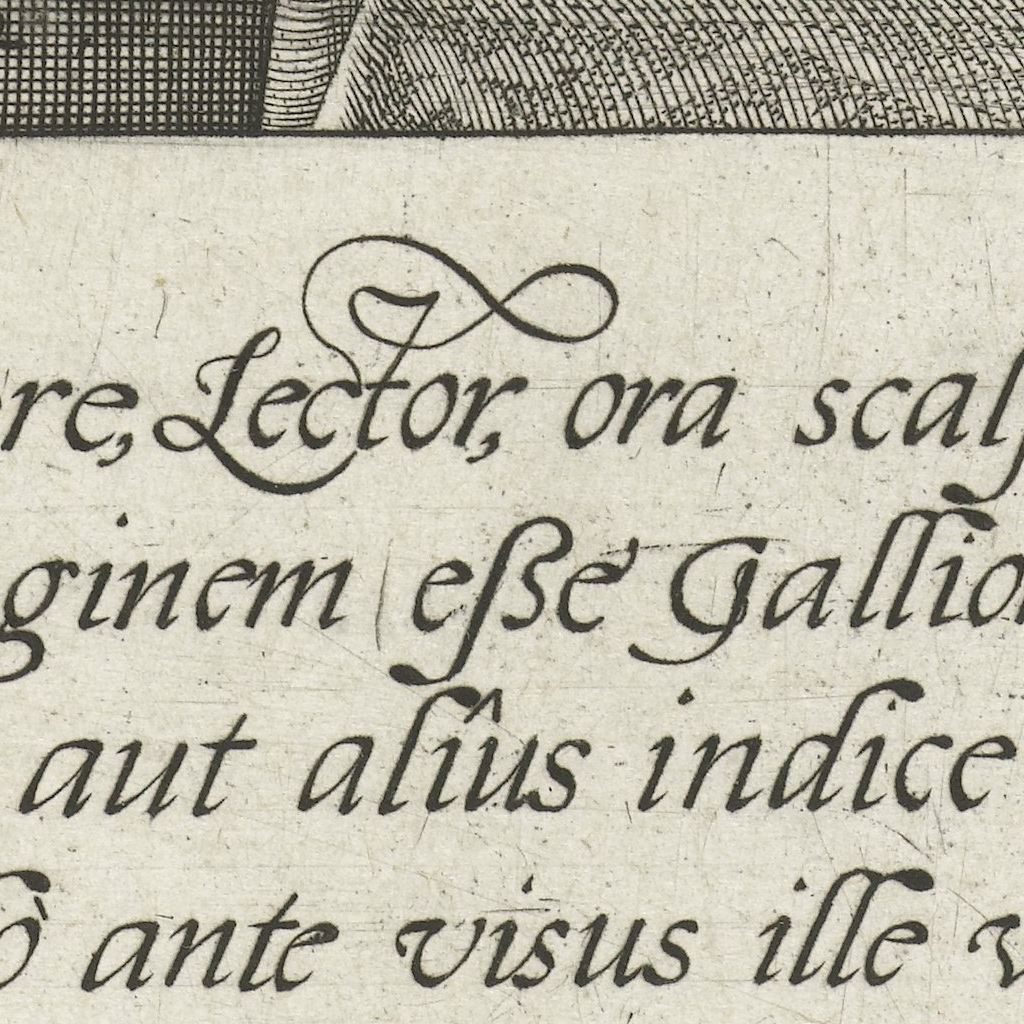 re, Lector, ora scalp
ginem eſse Gallio
aut aliûs indice
ò ante visus ille v